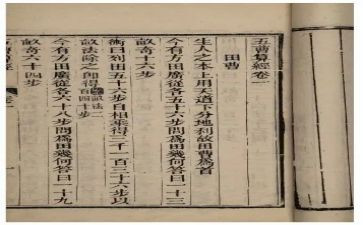 五曹算經卷一
田曹
生人之本上用天道下分地利故田曹爲首
今有方田廣從各五十六步問爲田幾何答曰一十三
畝奇十六步
術曰列田五十六步自相乘得三千一百三十六步以
畝法除之即得
今有方田廣從各六十八步問爲田幾何答曰一十九
畝奇六十四步